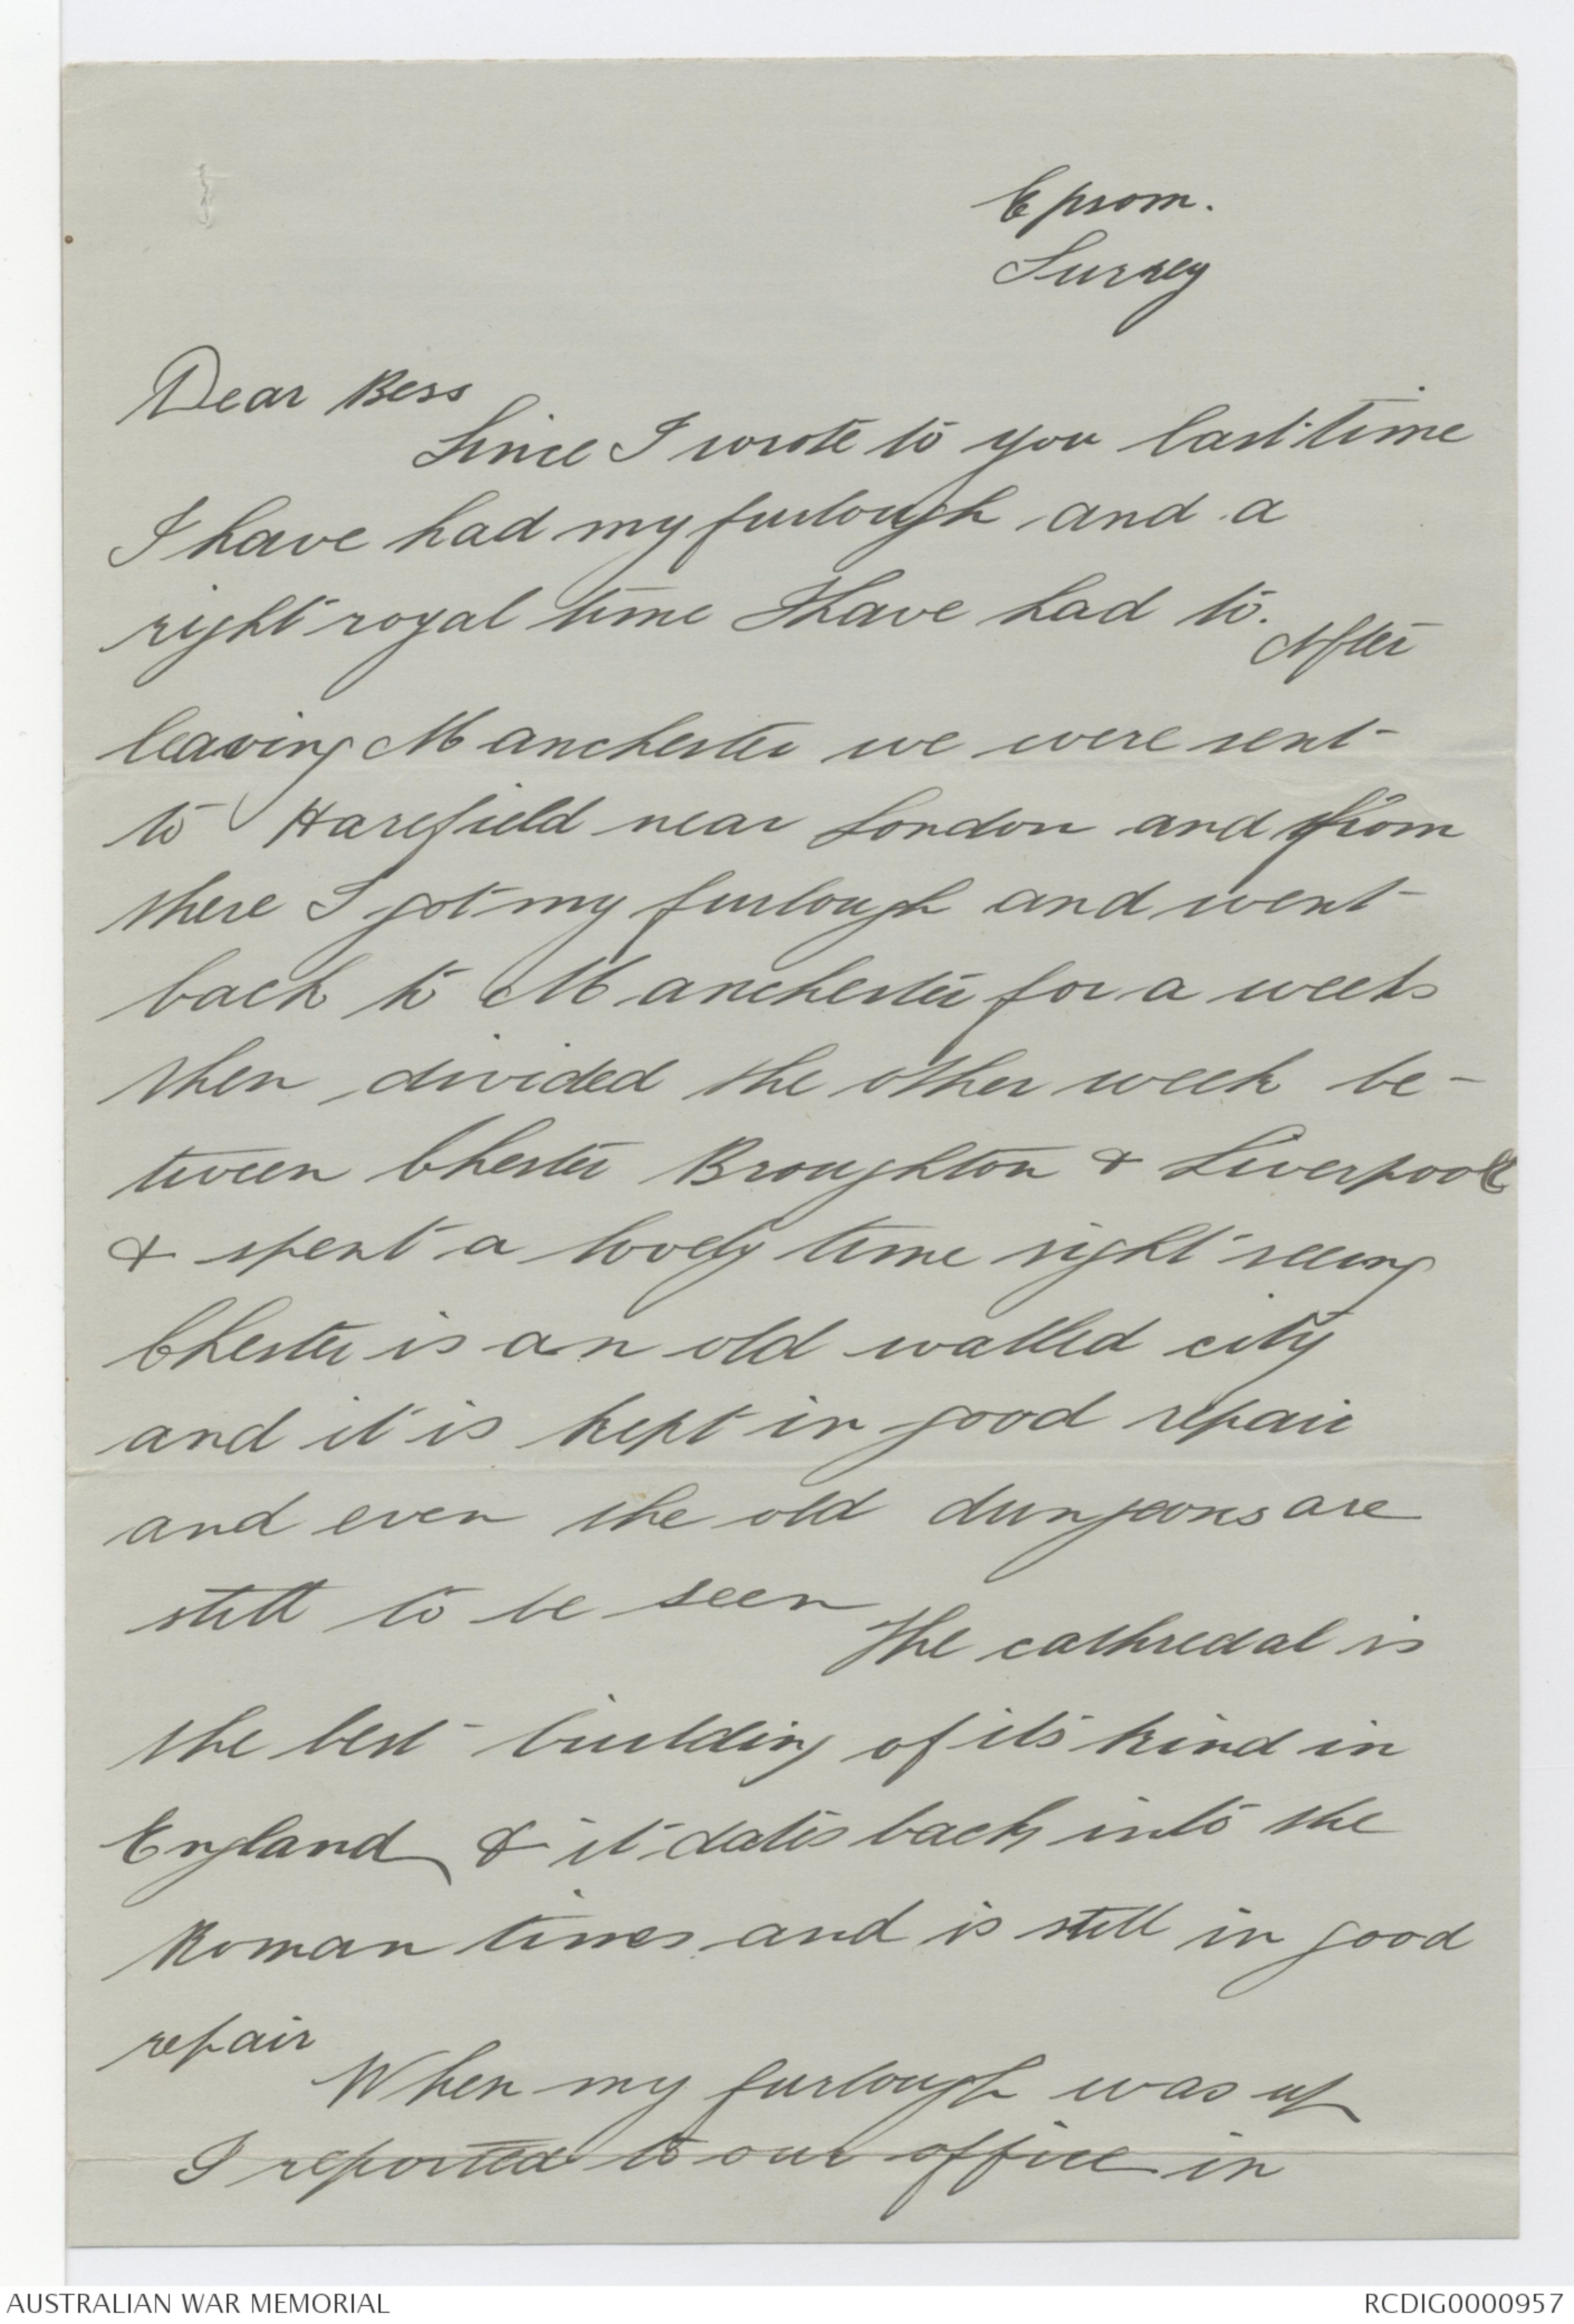 Epsom.
Surrey
Dear Bess
Since I wrote to you last time
I have had my furlough and a
right royal time I have had to.
After
leaving Manchester we were sent
to Harefield near London and from
there I got my furlough and went
back to Manchester for a week
then divided the other week be-
tween Chester Broughton & Liverpool
& spent a lovely time sight seeing
Chester is an old walled city
and it is kept in good repair
and even the old dungeons are
still to be seen
The cathredal is
the best building of its kind in
England & it dates back into the
Roman times and is still in good
repair
When my furlough was up
I reported to our office in
AUSTRALIAN WAR MEMORIAL
RCDIG0000957